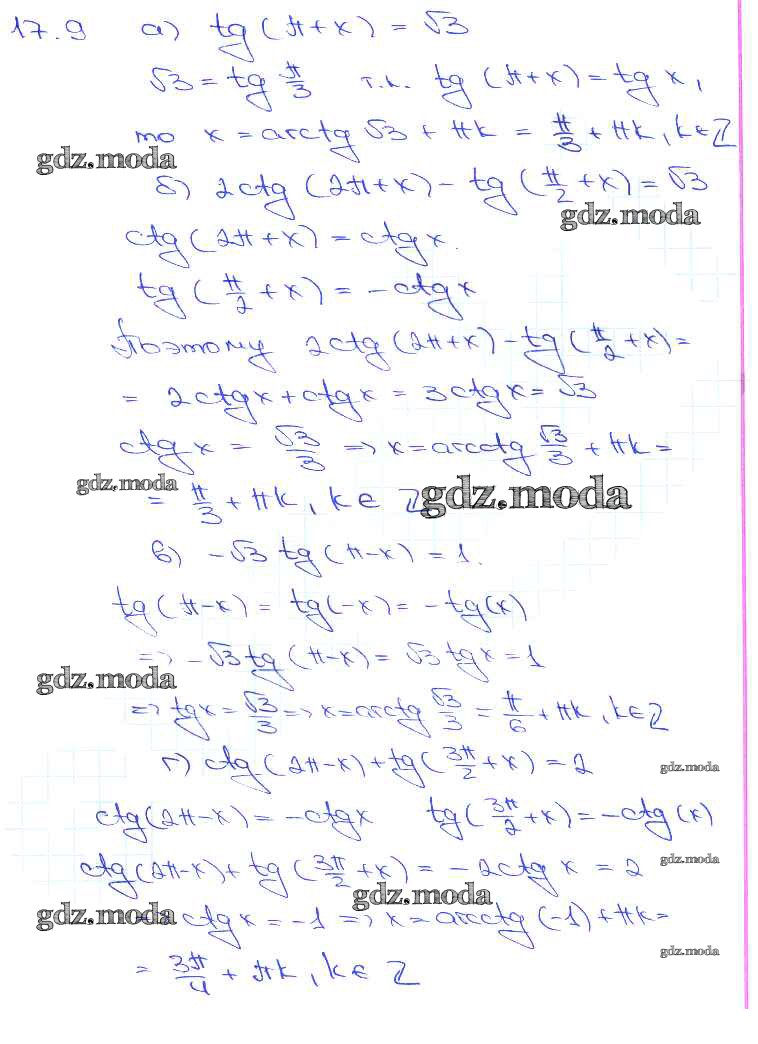 17.9 а) tg(π+x) = √3
√3 = tg π/3 т.к. tg(π+x) = tg x,
то x = arctg √3 + πk = π/3 + πk, k∈Z
gdz.moda
б) 2ctg(2π+x) - tg(π/2 + x) = √3
gdz.moda
ctg(2π+x) = ctg x.
tg(π/2 + x) = -ctg x
Поэтому 2ctg(2π+x) - tg(π/2 + x) =
= 2ctg x + ctg x = 3ctg x = √3
ctg x = √3/3 => x = arcctg √3/3 + πk =
gdz.moda
= π/3 + πk, k∈Z
gdz.moda
в) -√3 tg(π-x) = 1.
tg(π-x) = tg(-x) = -tg(x)
=> -√3 tg(π-x) = √3 tg x = 1
gdz.moda
=> tg x = √3/3 => x = arctg √3/3 = π/6 + πk, k∈Z
г) ctg(2π-x) + tg(3π/2 + x) = 2
gdz.moda
ctg(2π-x) = -ctg x tg(3π/2 + x) = -ctg(x)
ctg(2π-x) + tg(3π/2 + x) = -2ctg x = 2
gdz.moda
gdz.moda
gdz.moda
ctg x = -1 => x = arcctg(-1) + πk =
gdz.moda
= 3π/4 + πk, k∈Z